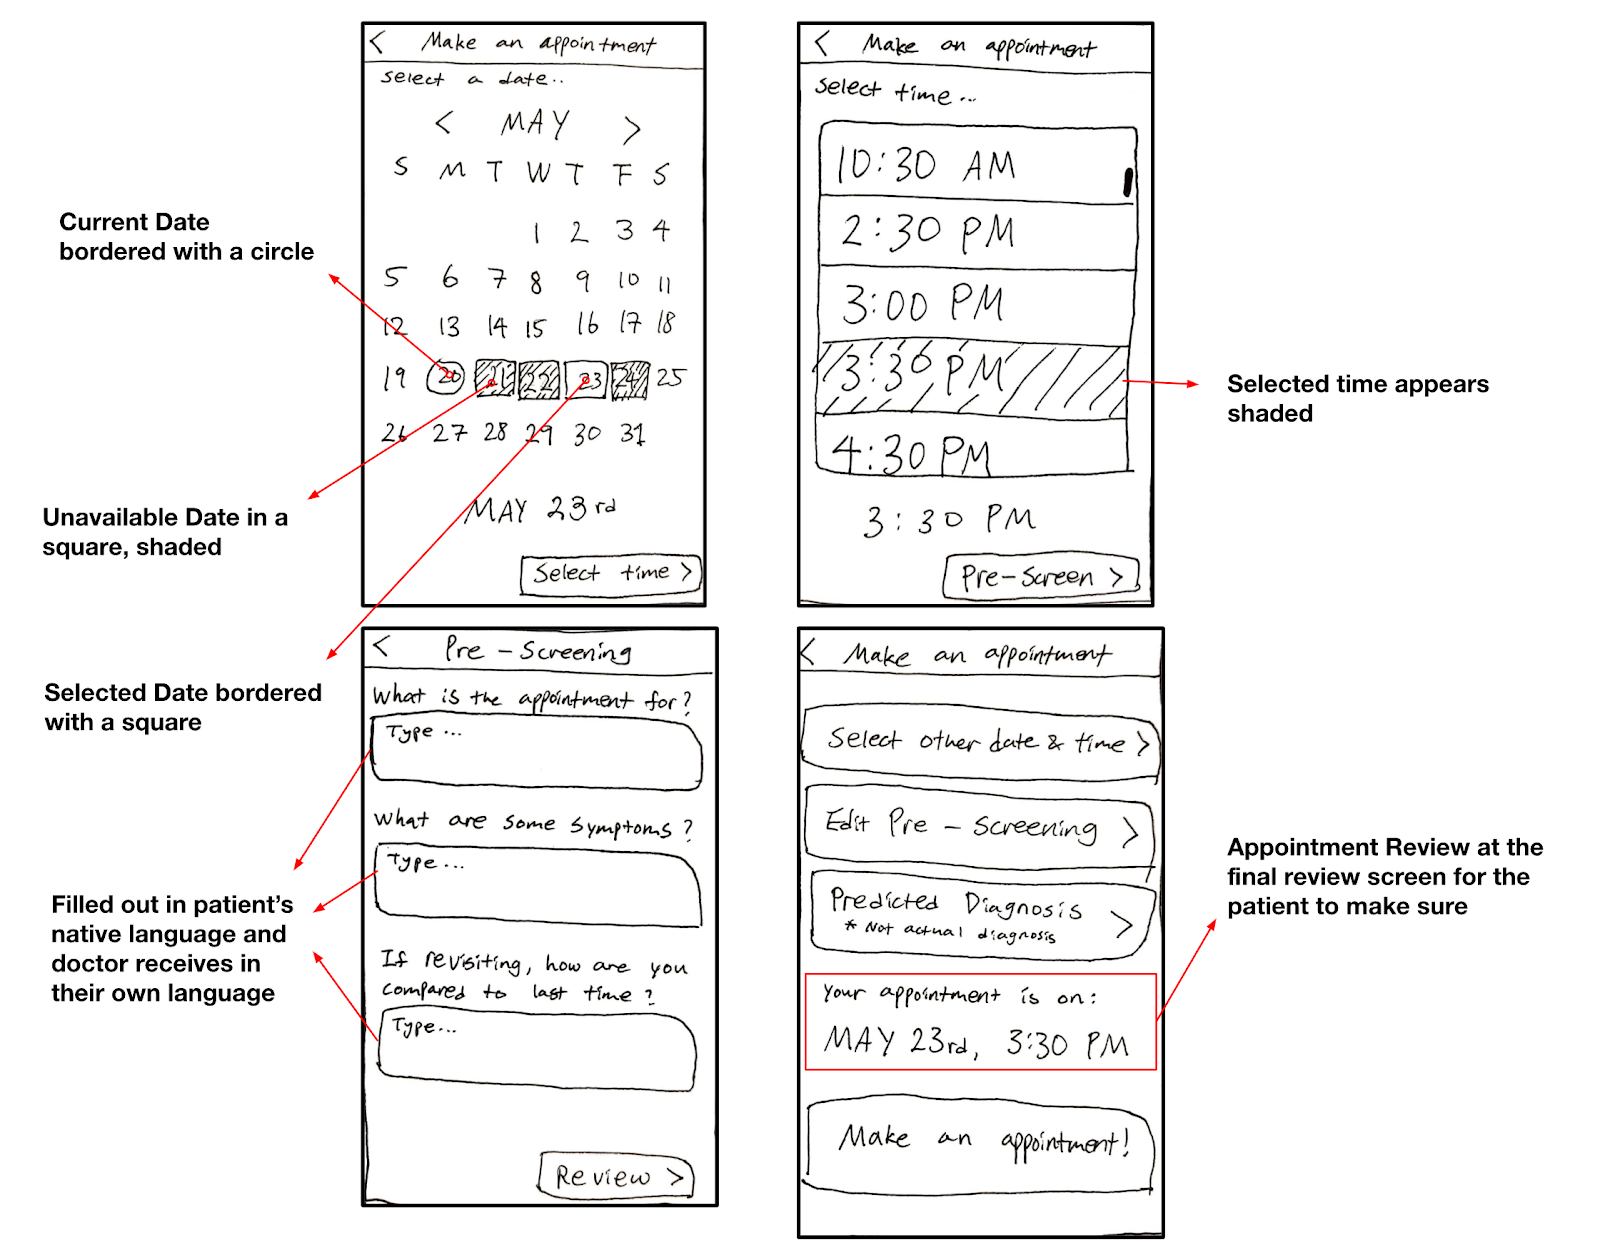 < Make an appointment
Select a date..
< MAY >
S M T W T F S
1 2 3 4
5 6 7 8 9 10 11
12 13 14 15 16 17 18
19 20 21 22 23 24 25
26 27 28 29 30 31
MAY 23rd
Select time >
Current Date
bordered with a circle
Unavailable Date in a
square, shaded
Selected Date bordered
with a square
< Make an appointment
Select time...
10:30 AM
2:30 PM
3:00 PM
3:30 PM
4:30 PM
3:30 PM
Pre-Screen >
Selected time appears
shaded
< Pre - Screening
What is the appointment for?
Type ...
What are some symptoms?
Type ...
If revisiting, how are you
compared to last time?
Type...
Review >
Filled out in patient's
native language and
doctor receives in
their own language
< Make an appointment
Select other date & time >
Edit Pre - Screening >
Predicted Diagnosis >
* Not actual diagnosis
Your appointment is on:
MAY 23rd, 3:30 PM
Make an appointment!
Appointment Review at the
final review screen for the
patient to make sure